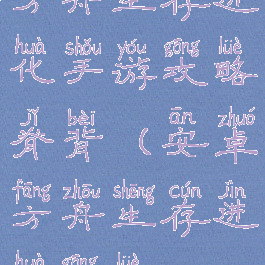 方舟生存进
huà shǒu yóu gōng lüè
化手游攻略
jǐ bèi ān zhuó
脊背(安卓
fāng zhōu shēng cún jìn
方舟生存进
huà gōng lüè